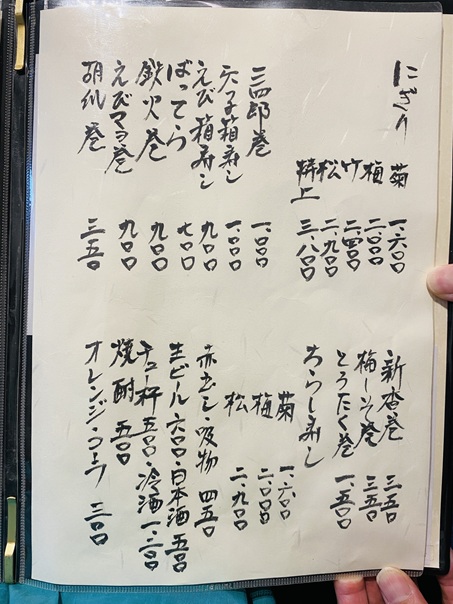 にぎり
菊 一、六〇〇
梅 二、〇〇〇
竹 二、四〇〇
松 二、九〇〇
特上 三、八〇〇
三四郎巻 一、〇〇〇
穴子箱寿し 一、〇〇〇
えび箱寿し 九〇〇
ばってら 七〇〇
鉄火巻 九〇〇
えびマヨ巻 九〇〇
胡瓜巻 三五〇
新香巻 三五〇
梅しそ巻 三五〇
とろたく巻 一、五〇〇
ちらし寿し
菊 一、六〇〇
梅 二、〇〇〇
松 二、九〇〇
赤だし・吸物 四五〇
生ビール 六〇〇・日本酒 五〇〇
チュー杯 五〇〇・冷酒 一、三〇〇
焼酎 五〇〇
オレンジ・コーラ 三〇〇